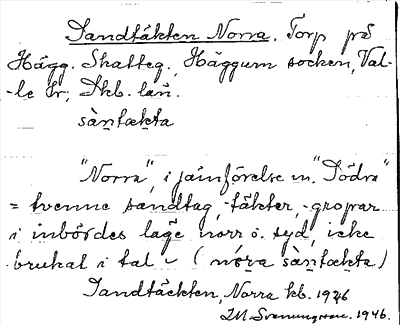 Sandtäkten Norra. Torp på
Hägg. Skatteg., Häggum socken, Val-
-le hr; Skb. län.
sàntækta
"Norra", i jämförelse m. "Södra"
= tvenne sandtag, -täkter, -gropar
i inbördes läge norr o. syd, icke
brukal i tal ( nórra sàntækta)
Sandtäckten, Norra kb. 1926
IM Svenungsson. 1946.